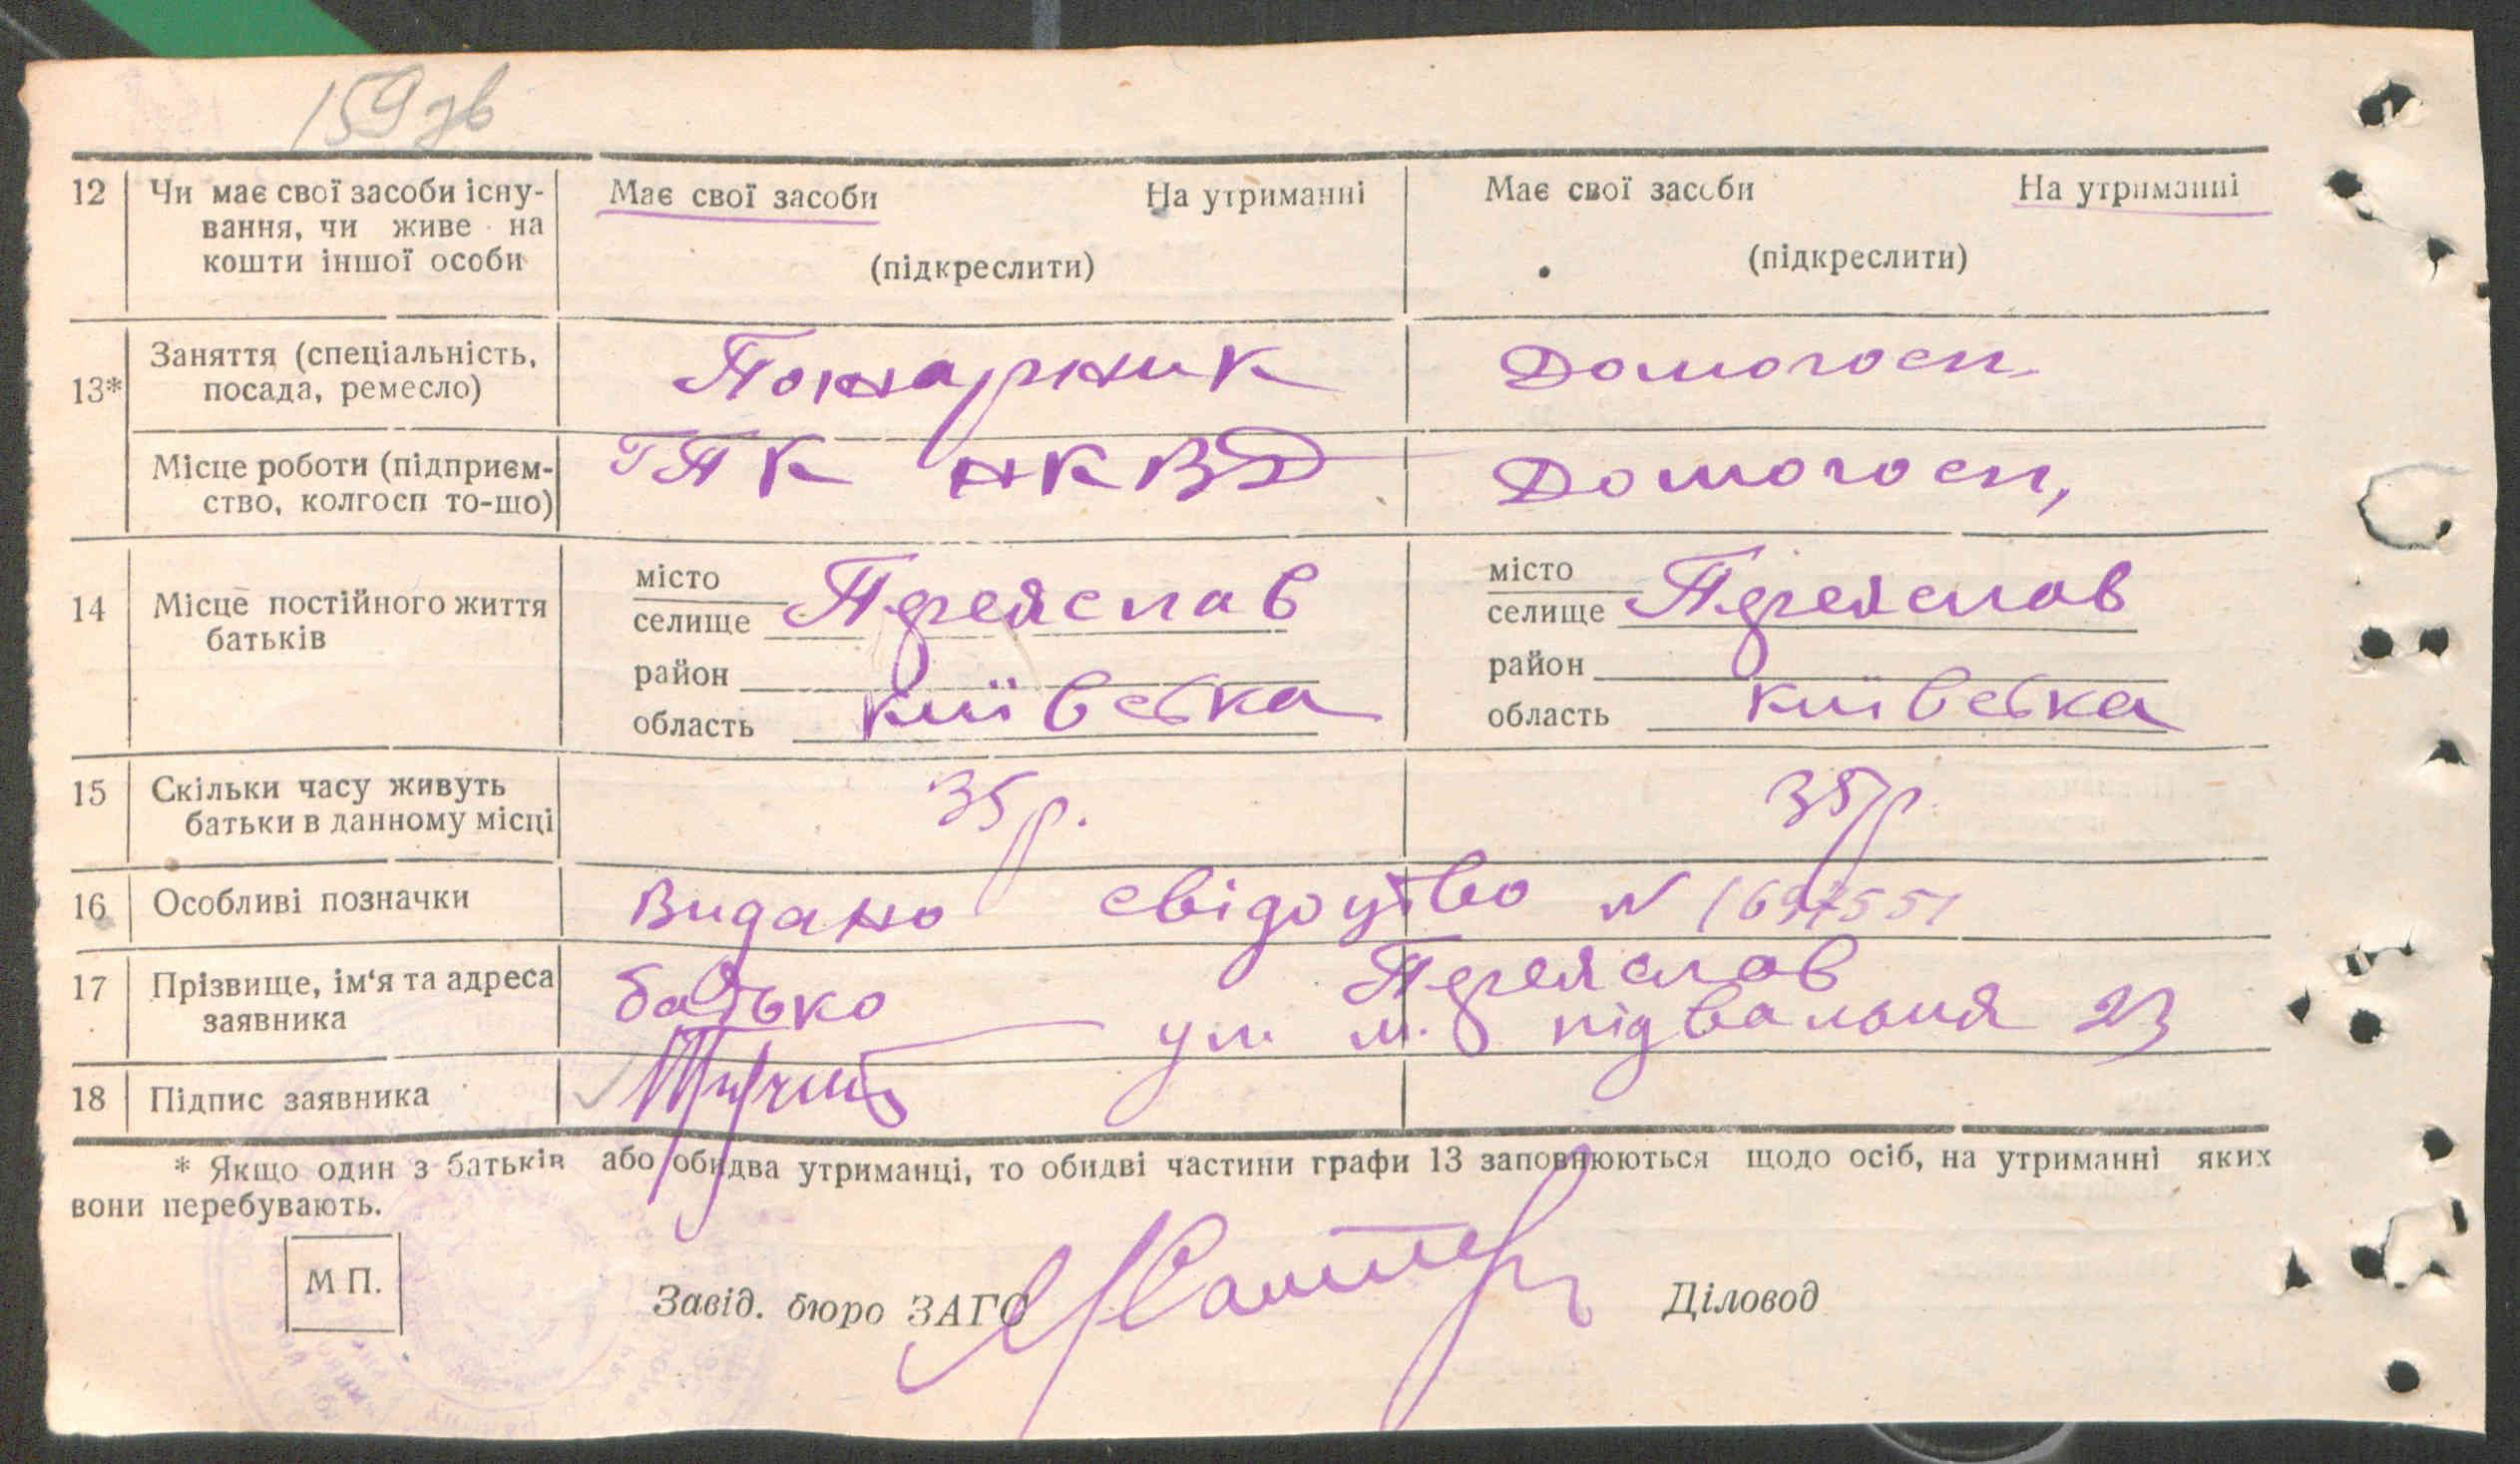 159 зв
12 Чи має свої засоби існу- Має свої засоби На утриманні Має свої засоби На утриманні
вання, чи живе на
кошти іншої особи (підкреслити) (підкреслити)
Заняття (спеціальність, Пожарник Домогосп.
13* посада, ремесло)
Місце роботи (підприєм- ГПК НКВД Домогосп,
ство, колгосп то-що)
місто Переяслав місто Переяслав
14 Місце постійного життя селище селище
батьків
район район
область київська область київська
15 Скільки часу живуть 35 р. 35 р.
батьки в данному місці
16 Особливі позначки Видано свідоцтво N
17 Прізвище, ім'я та адреса батько Переяслав
заявника ул. м. підвальня 23
18 Підпис заявника
* Якщо один з батьків або обидва утриманці, то обидві частини графи 13 заповнюються щодо осіб, на утриманні яких
вони перебувають.
М П.
Завід. бюро ЗАГС Діловод